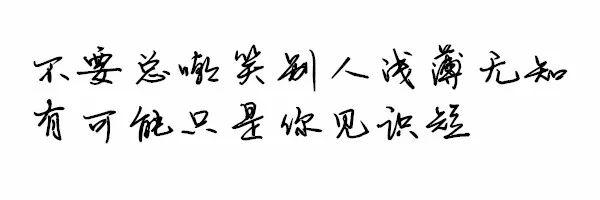 不要总嘲笑别人浅薄无知
有可能只是你见识短